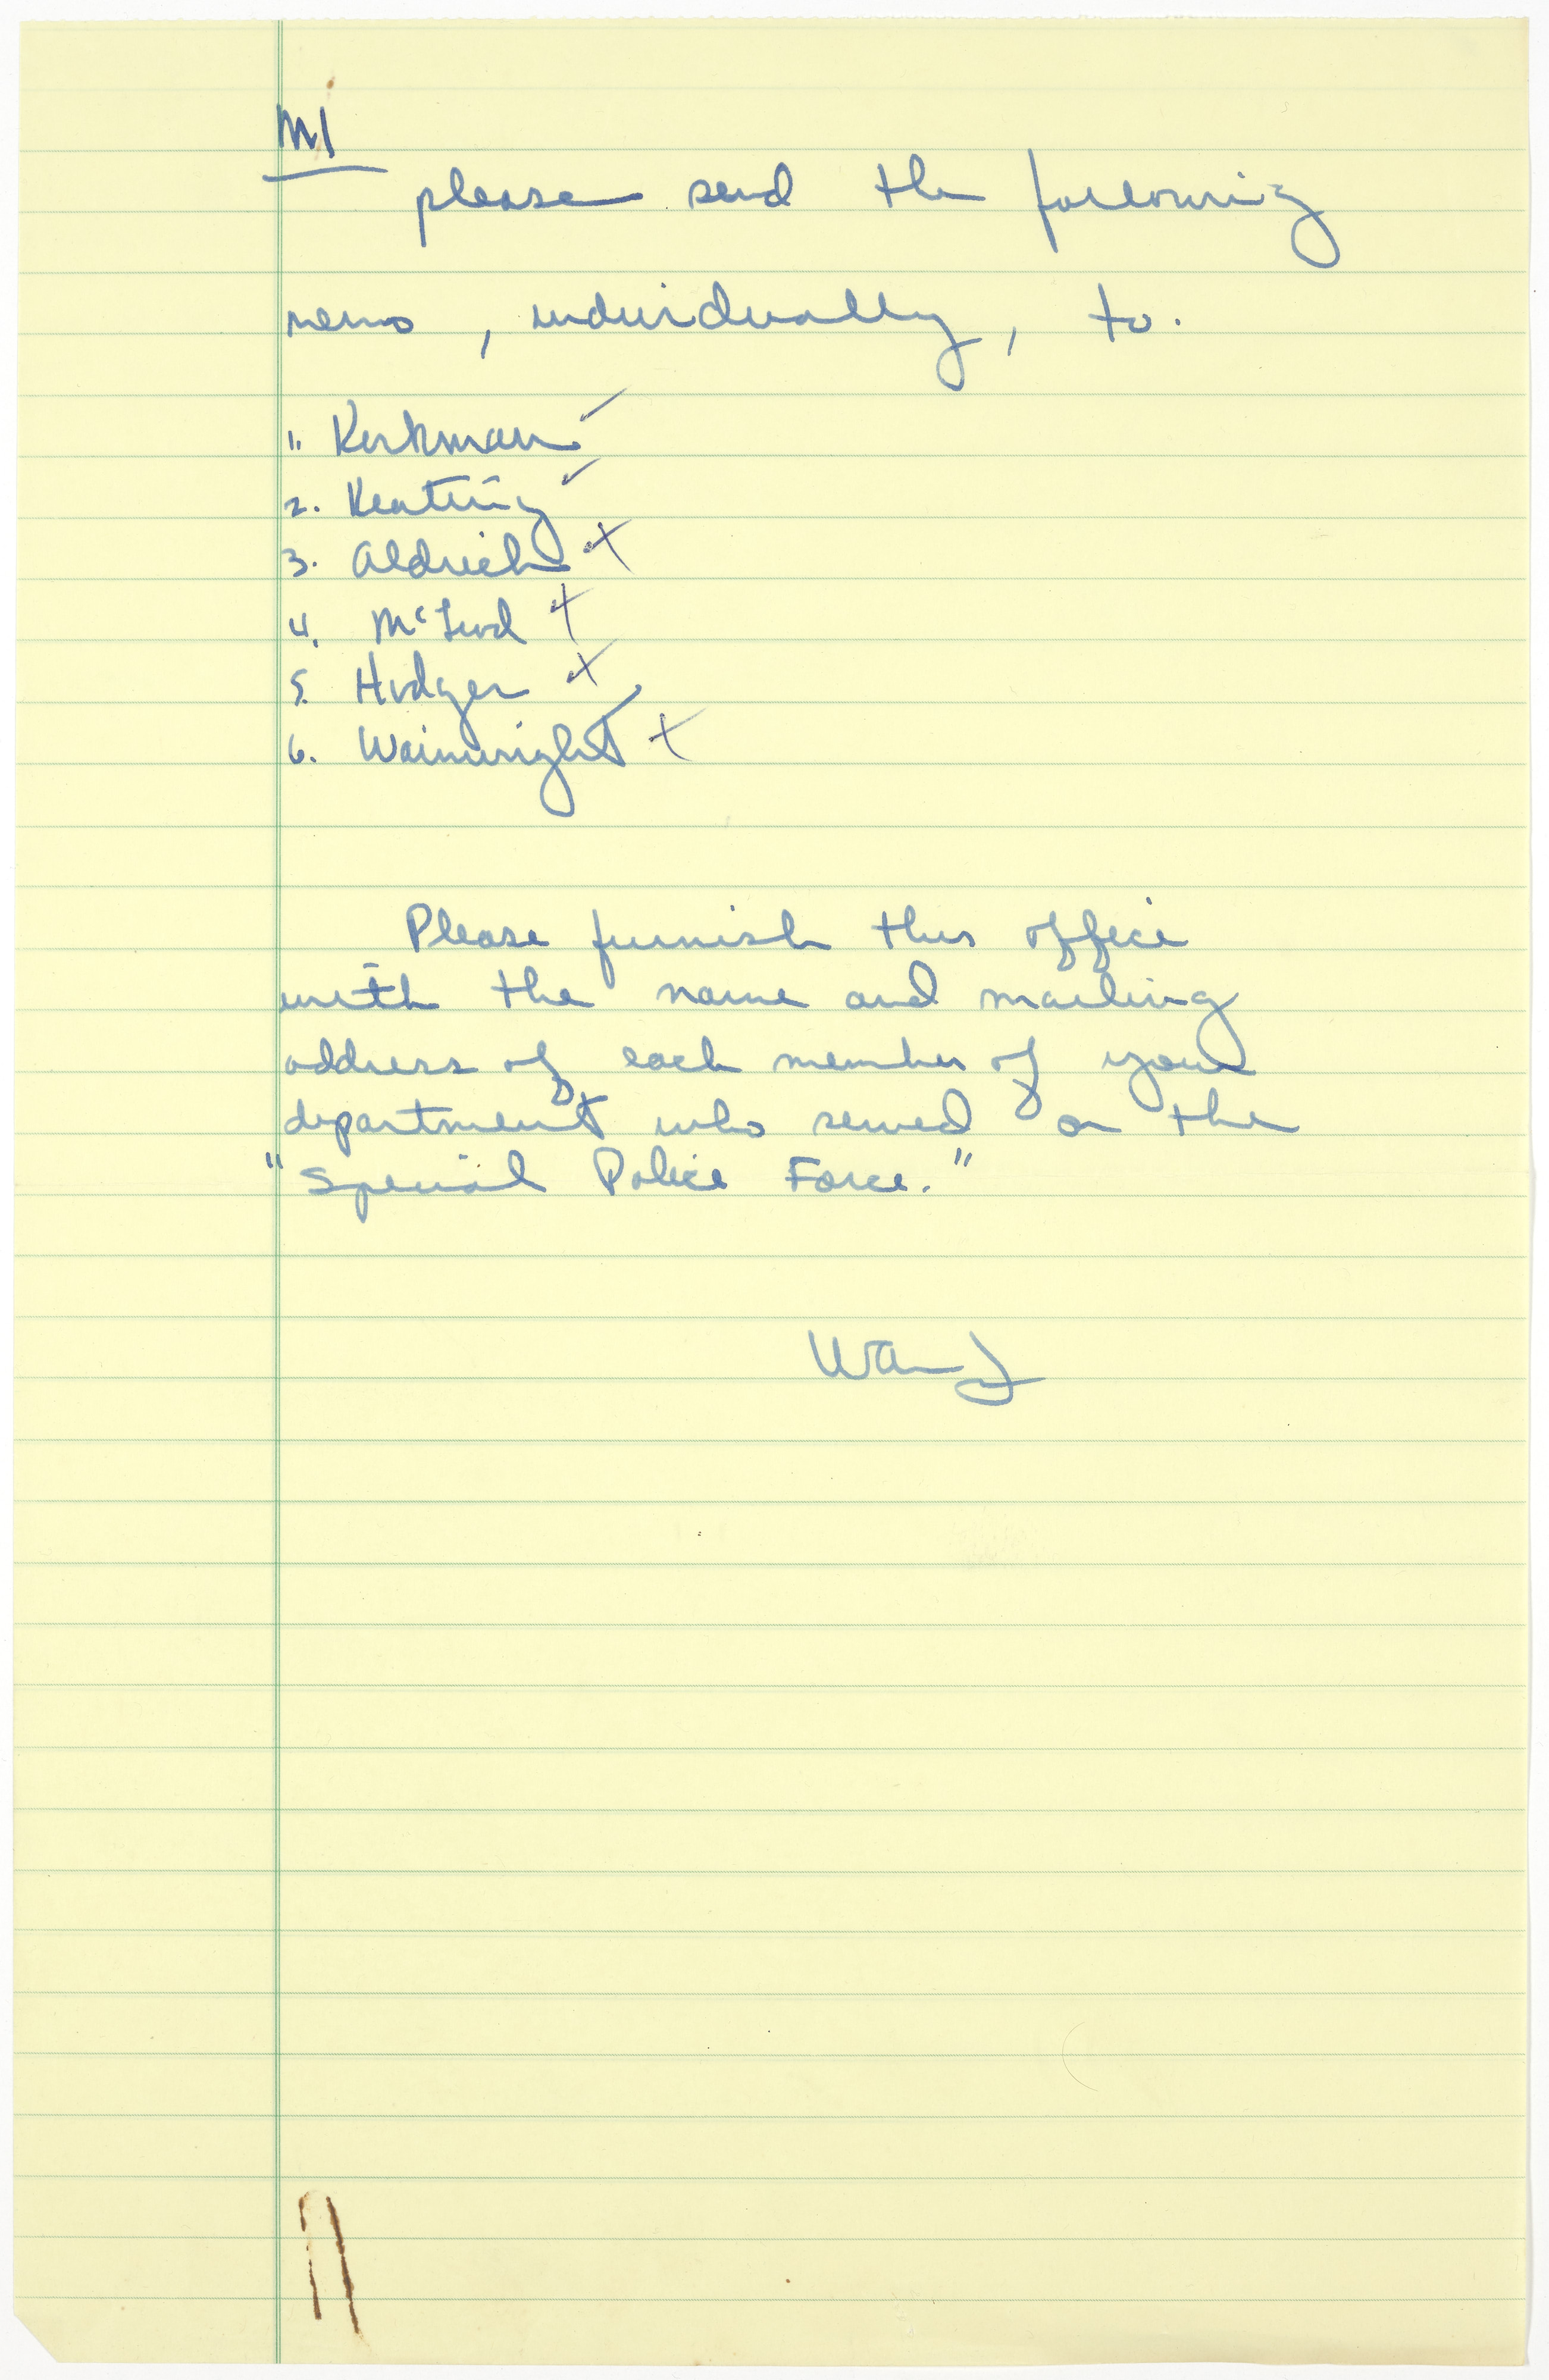 MJ
please send the following
memo, individually, to.
1. Kirkman ✓
2. Keating ✓
3. Aldrich x
4. McLeod x
5. Hodges x
6. Wainwright x
Please furnish this office
with the name and mailing
address of each member of your
department who served on the
"Special Police Force."